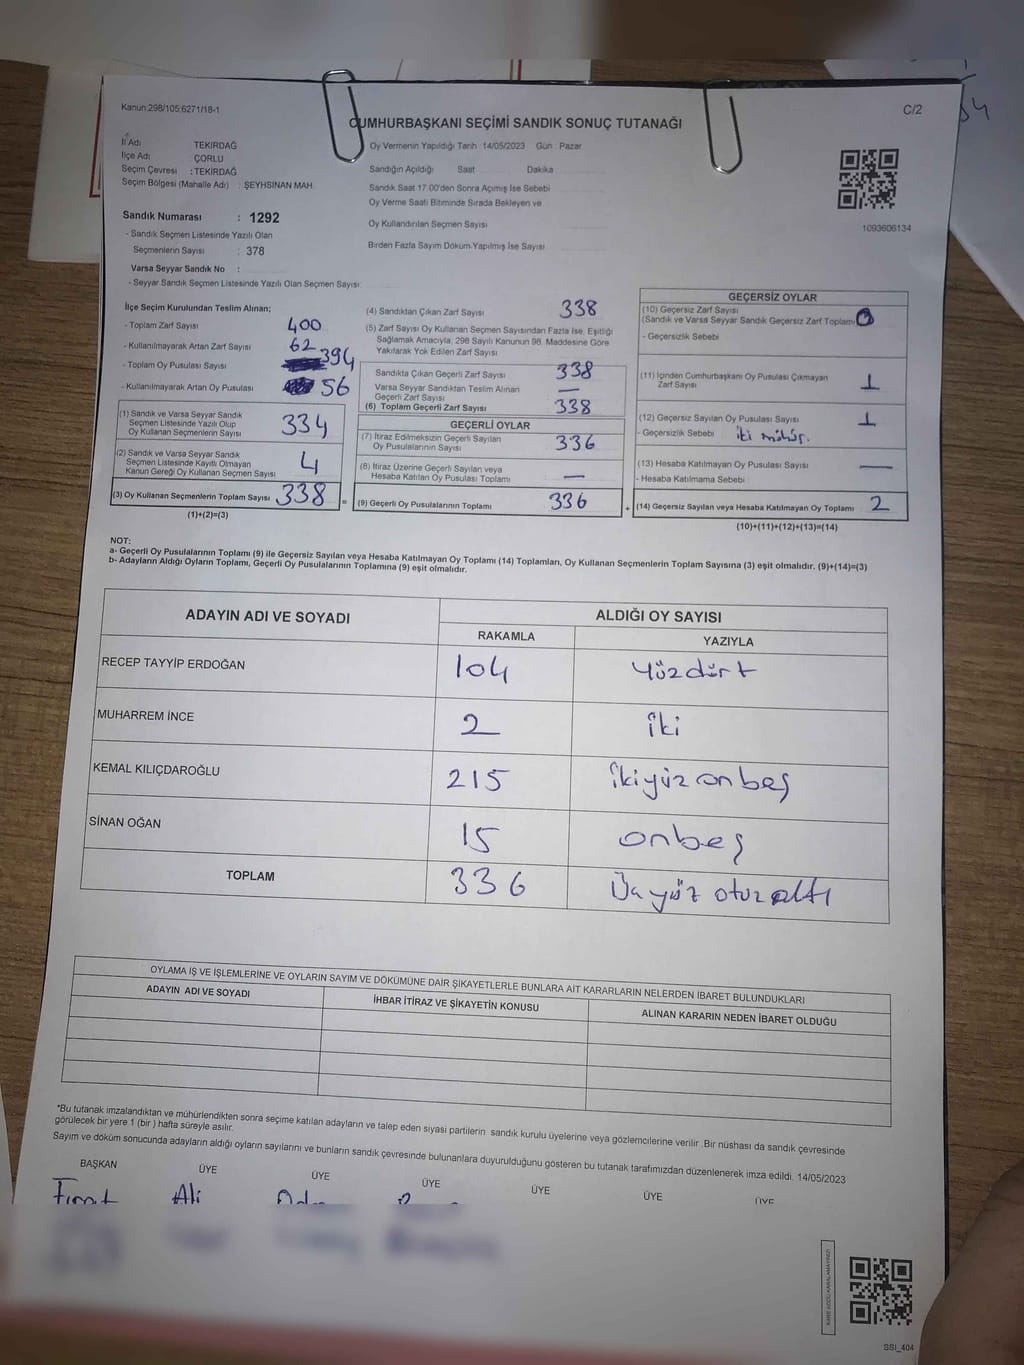 C/2
Kanun:298/105;6271/18-1
CUMHURBAŞKANI SEÇİMİ SANDIK SONUÇ TUTANAĞI
İl Adı TEKİRDAĞ
İlçe Adı : ÇORLU
Seçim Çevresi : TEKİRDAĞ
Seçim Bölgesi (Mahalle Adı) : ŞEYHSİNAN MAH.
Sandık Numarası : 1292
- Sandık Seçmen Listesinde Yazılı Olan
Seçmenlerin Sayısı : 378
Varsa Seyyar Sandık No :
- Seyyar Sandık Seçmen Listesinde Yazılı Olan Seçmen Sayısı:
Oy Vermenin Yapıldığı Tarih 14/05/2023 Gün : Pazar
Sandığın Açıldığı Saat Dakika
Sandık Saat 17.00'den Sonra Açımış İse Sebebi
Oy Verme Saati Bitiminde Sırada Bekleyen ve
Oy Kullandırılan Seçmen Sayısı
Birden Fazla Sayım Döküm Yapılmış İse Sayısı
1093606134
İlçe Seçim Kurulundan Teslim Alınan;
- Toplam Zarf Sayısı 400
- Kullanılmayarak Artan Zarf Sayısı 62
- Toplam Oy Pusulası Sayısı 394
- Kullanılmayarak Artan Oy Pusulası 56
(1) Sandık ve Varsa Seyyar Sandık
Seçmen Listesinde Yazılı Olup
Oy Kullanan Seçmenlerin Sayısı 334
(2) Sandık ve Varsa Seyyar Sandık
Seçmen Listesinde Kayıtlı Olmayan
Kanun Gereği Oy Kullanan Seçmen Sayısı 4
(3) Oy Kullanan Seçmenlerin Toplam Sayısı 338 =
(1)+(2)=(3)
(4) Sandıktan Çıkan Zarf Sayısı 338
(5) Zarf Sayısı Oy Kullanan Seçmen Sayısından Fazla İse, Eşitliği
Sağlamak Amacıyla, 298 Sayılı Kanunun 98. Maddesine Göre
Yakılarak Yok Edilen Zarf Sayısı
Sandıkta Çıkan Geçerli Zarf Sayısı 338
Varsa Seyyar Sandıktan Teslim Alınan
Geçerli Zarf Sayısı —
(6) Toplam Geçerli Zarf Sayısı 338
GEÇERLİ OYLAR
(7) İtiraz Edilmeksizin Geçerli Sayılan
Oy Pusulalarının Sayısı 336
(8) İtiraz Üzerine Geçerli Sayılan veya
Hesaba Katılan Oy Pusulası Toplamı —
(9) Geçerli Oy Pusulalarının Toplamı 336 +
GEÇERSİZ OYLAR
(10) Geçersiz Zarf Sayısı
(Sandık ve Varsa Seyyar Sandık Geçersiz Zarf Toplamı) 0
- Geçersizlik Sebebi
(11) İçinden Cumhurbaşkanı Oy Pusulası Çıkmayan
Zarf Sayısı 1
(12) Geçersiz Sayılan Oy Pusulası Sayısı 1
- Geçersizlik Sebebi iki mühür.
(13) Hesaba Katılmayan Oy Pusulası Sayısı —
- Hesaba Katılmama Sebebi
(14) Geçersiz Sayılan veya Hesaba Katılmayan Oy Toplamı 2
(10)+(11)+(12)+(13)=(14)
NOT:
a- Geçerli Oy Pusulalarının Toplamı (9) ile Geçersiz Sayılan veya Hesaba Katılmayan Oy Toplamı (14) Toplamları, Oy Kullanan Seçmenlerin Toplam Sayısına (3) eşit olmalıdır. (9)+(14)=(3)
b- Adayların Aldığı Oyların Toplamı, Geçerli Oy Pusulalarının Toplamına (9) eşit olmalıdır.
ADAYIN ADI VE SOYADI ALDIĞI OY SAYISI
RAKAMLA YAZIYLA
RECEP TAYYİP ERDOĞAN 104 Yüzdört
MUHARREM İNCE 2 iki
KEMAL KILIÇDAROĞLU 215 ikiyüz onbeş
SİNAN OĞAN 15 onbeş
TOPLAM 336 Üçyüz otuz altı
OYLAMA İŞ VE İŞLEMLERİNE VE OYLARIN SAYIM VE DÖKÜMÜNE DAİR ŞİKAYETLERLE BUNLARA AİT KARARLARIN NELERDEN İBARET BULUNDUKLARI
ADAYIN ADI VE SOYADI İHBAR İTİRAZ VE ŞİKAYETİN KONUSU ALINAN KARARIN NEDEN İBARET OLDUĞU
*Bu tutanak imzalandıktan ve mühürlendikten sonra seçime katılan adayların ve talep eden siyasi partilerin sandık kurulu üyelerine veya gözlemcilerine verilir. Bir nüshası da sandık çevresinde
görülecek bir yere 1 (bir ) hafta süreyle asılır.
Sayım ve döküm sonucunda adayların aldığı oyların sayılarını ve bunların sandık çevresinde bulunanlara duyurulduğunu gösteren bu tutanak tarafımızdan düzenlenerek imza edildi. 14/05/2023
BAŞKAN ÜYE ÜYE ÜYE ÜYE ÜYE ÜYE
Fırat Ali
SSI_404